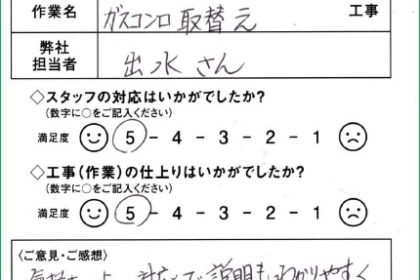 作業名 ガスコンロ取替え 工事
弊社担当者 出水さん
◇スタッフの対応はいかがでしたか?
(数字に○をご記入ください)
満足度 5 - 4 - 3 - 2 - 1
◇工事(作業)の仕上りはいかがでしたか?
(数字に○をご記入ください)
満足度 5 - 4 - 3 - 2 - 1
〈ご意見・ご感想〉
説明もわかりやすく